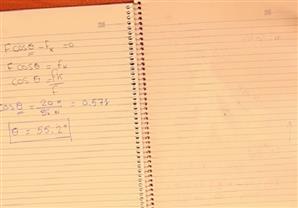 F cosθ - fk = 0
F cosθ = fk
cosθ = fk/F
cosθ = 20 N/35 N = 0.571
θ = 55.2°